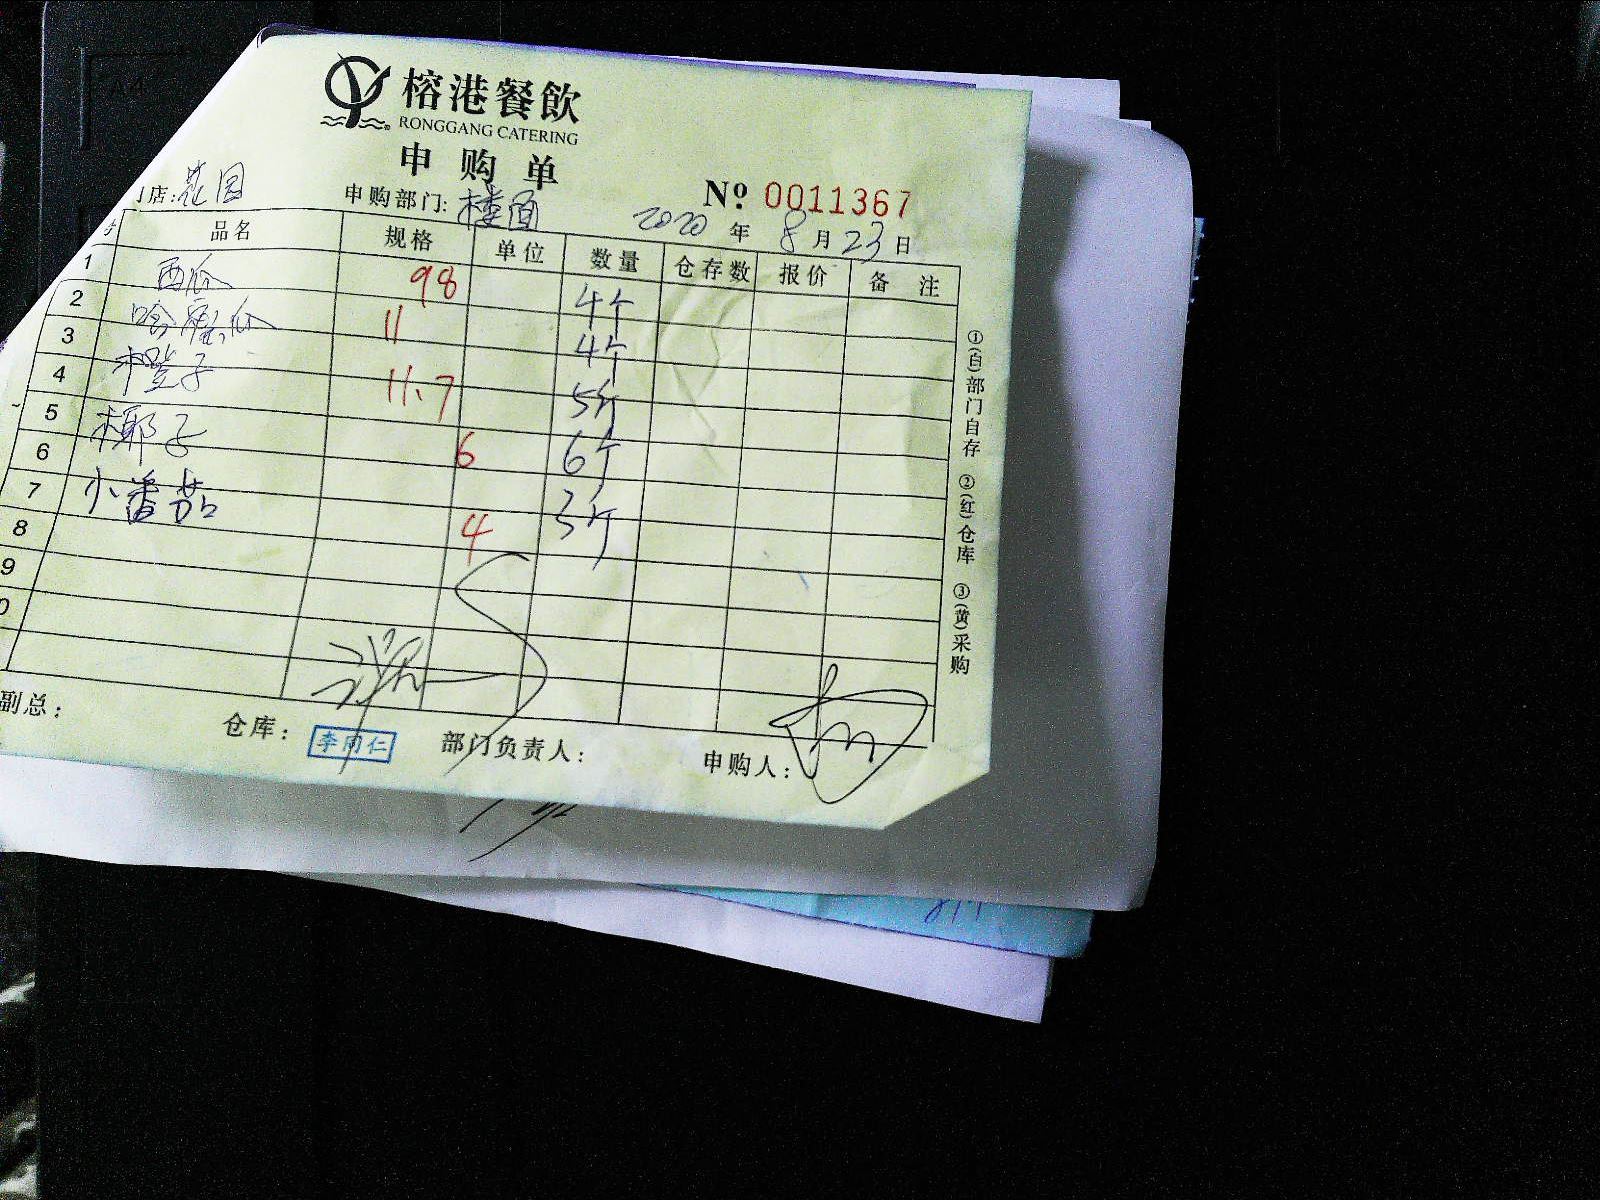 榕港餐飲
RONGGANG CATERING
申购单
门店:花园 申购部门:楼面 2020年8月23日
Nº 0011367
品名 规格 单位 数量 仓存数 报价 备注
1 西瓜 98 4个
2 哈蜜瓜 11 4个
3 橙子 11.7 5斤
4 椰子 6 6个
5 小番茄 4 3斤
6
7
8
9
①(白)部门自存 ②(红)仓库 ③(黄)采购
副总: 仓库: 李同仁 部门负责人: 申购人: